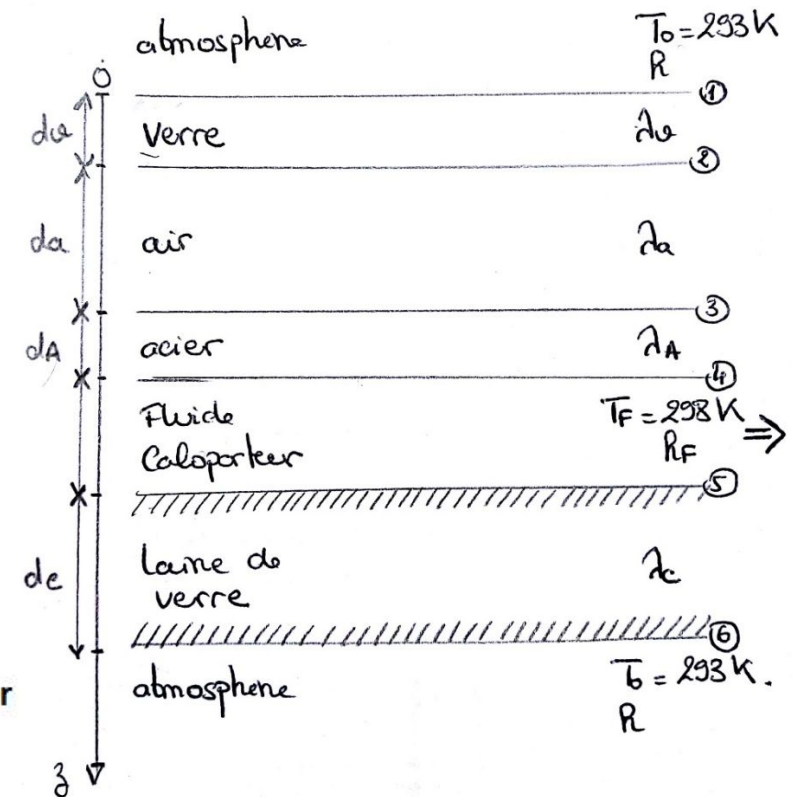 atmosphere
T₀ = 293 K
h
O
①
dv
Verre
λv
②
da
air
λa
③
dA
acier
λA
④
Fluide
Caloporteur
TF = 298 K
hF
⇒
⑤
de
laine de
verre
λc
⑥
atmosphere
T₀ = 293 K.
h
r
z